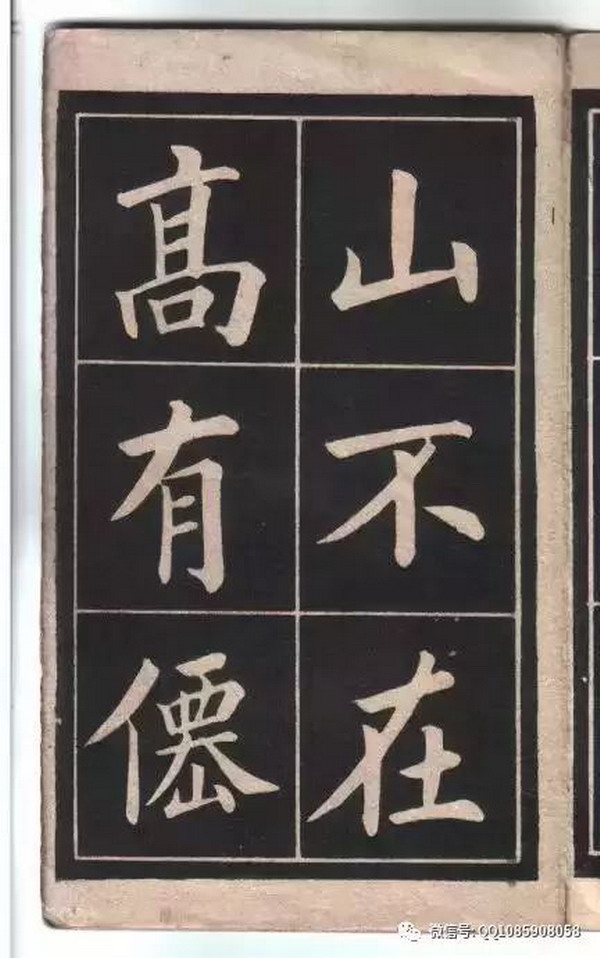 山不在
高有僊
微信号: QQ1085908058